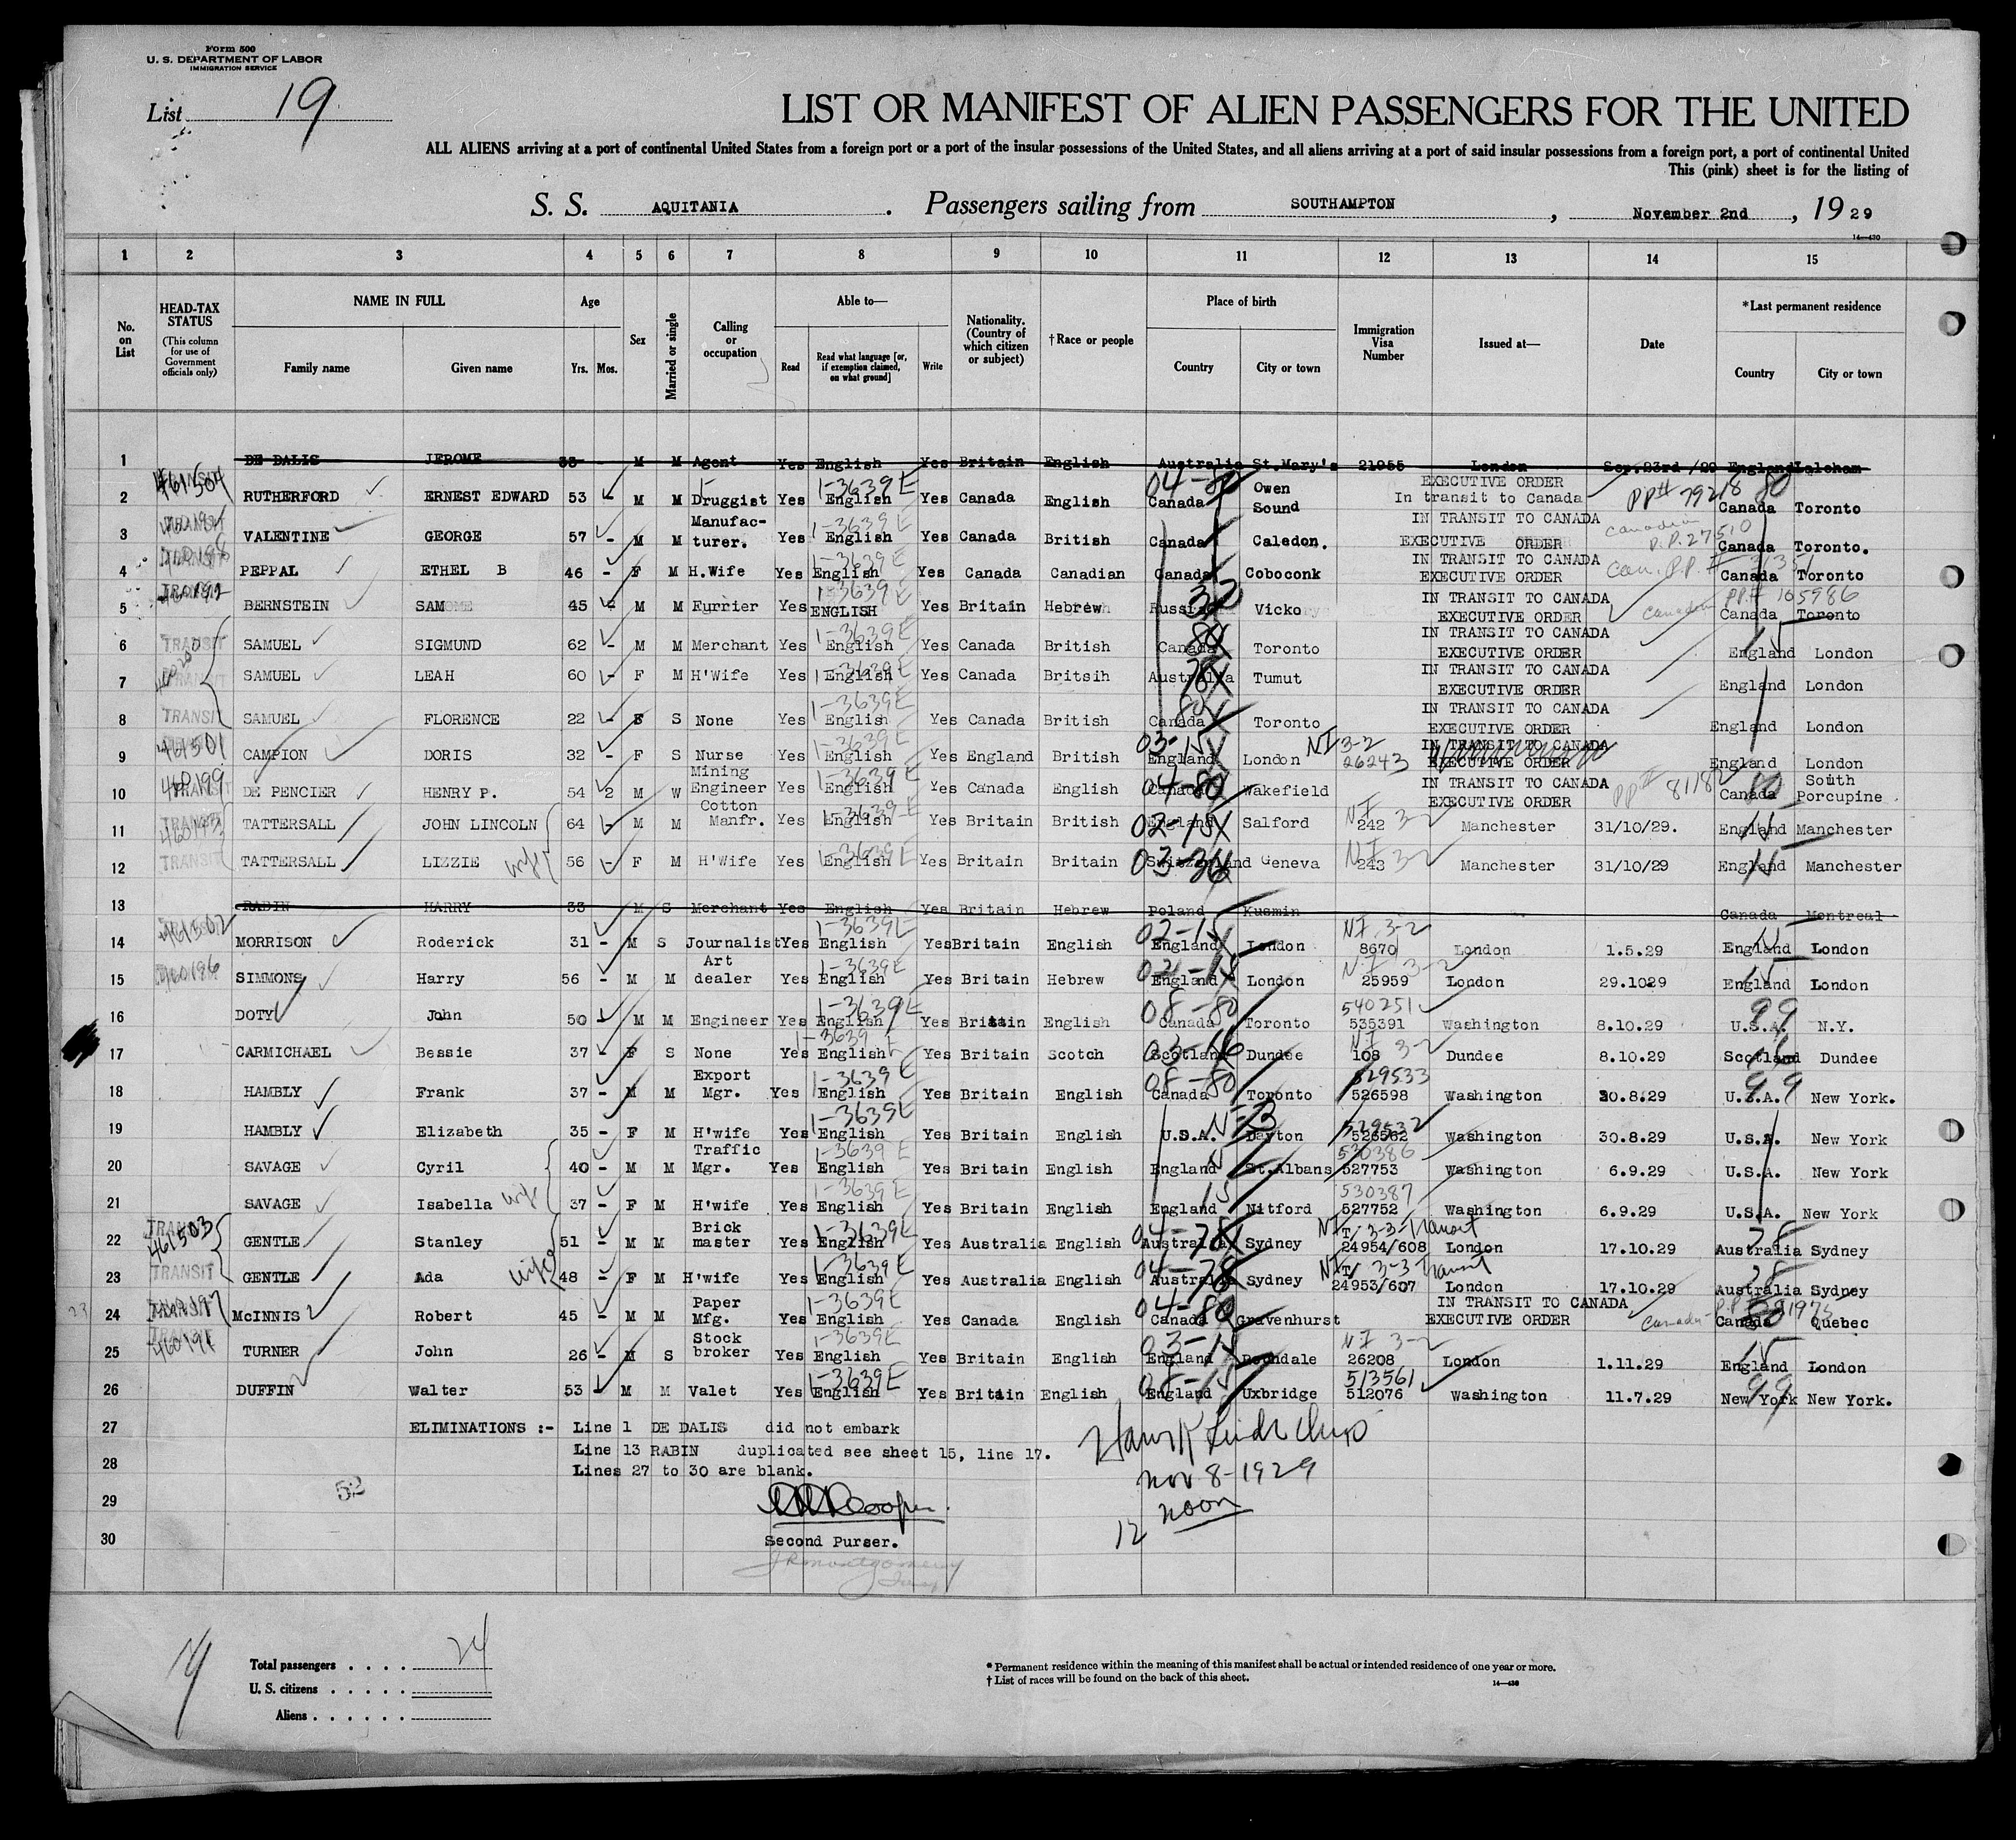 Form 500
U. S. DEPARTMENT OF LABOR
IMMIGRATION SERVICE
List 19
LIST OR MANIFEST OF ALIEN PASSENGERS FOR THE UNITED
ALL ALIENS arriving at a port of continental United States from a foreign port or a port of the insular possessions of the United States, and all aliens arriving at a port of said insular possessions from a foreign port, a port of continental United
This (pink) sheet is for the listing of
S. S. AQUITANIA . Passengers sailing from SOUTHAMPTON , November 2nd , 1929
14—430
1 2 3 4 5 6 7 8 9 10 11 12 13 14 15
No. on List
HEAD-TAX STATUS (This column for use of Government officials only)
NAME IN FULL Family name Given name
Age Yrs. Mos.
Sex
Married or single
Calling or occupation
Able to— Read Read what language [or, if exemption claimed, on what ground] Write
Nationality. (Country of which citizen or subject)
†Race or people
Place of birth Country City or town
Immigration Visa Number
Issued at—
Date
*Last permanent residence Country City or town
1 DE DALIS JEROME 35 - M M Agent Yes English Yes Britain English Australia St.Mary's 21955 London Sep.23rd /29 England Laleham
2 461504 RUTHERFORD ERNEST EDWARD 53 - M M Druggist Yes English 1-3639E Yes Canada English 04-80 Canada Owen Sound EXECUTIVE ORDER In transit to Canada PP# 79218 80 Canada Toronto
3 VALENTINE GEORGE 57 - M M Manufac-turer. Yes English 1-3639E Yes Canada British Canada Caledon. IN TRANSIT TO CANADA EXECUTIVE ORDER Canadian P.P.27510 Canada Toronto.
4 PEPPAL ETHEL B 46 - F M H.Wife Yes English 1-3639E Yes Canada Canadian Canada Coboconk IN TRANSIT TO CANADA EXECUTIVE ORDER Can. P.P. # Canada Toronto
5 BERNSTEIN SAM 45 - M M Furrier Yes ENGLISH 1-3639E Yes Britain Hebrew Russia Vicko IN TRANSIT TO CANADA EXECUTIVE ORDER Canadian PP# 165986 Canada Toronto
6 TRANSIT SAMUEL SIGMUND 62 - M M Merchant Yes English 1-3639E Yes Canada British Canada 80 Toronto IN TRANSIT TO CANADA EXECUTIVE ORDER England 15 London
7 SAMUEL LEAH 60 - F M H'Wife Yes English 1-3639E Yes Canada Britsih Australia 78 Tumut IN TRANSIT TO CANADA EXECUTIVE ORDER England London
8 TRANSIT SAMUEL FLORENCE 22 - S None Yes English 1-3639E Yes Canada British Canada 80 Toronto IN TRANSIT TO CANADA EXECUTIVE ORDER England London
9 461501 CAMPION DORIS 32 - F S Nurse Yes English 1-3639E Yes England British 03-15 England London NI 3-2 26243 IN TRANSIT TO CANADA EXECUTIVE ORDER England London
10 TRANSIT DE PENCIER HENRY P. 54 2 M W Mining Engineer Yes English 1-3639E Yes Canada English 04-80 Canada Wakefield IN TRANSIT TO CANADA EXECUTIVE ORDER PP# 81182 80 Canada South Porcupine
11 TRANSIT TATTERSALL JOHN LINCOLN 64 - M M Cotton Manfr. Yes English 1-3639E Yes Britain British 02-15 England Salford NI 242 3-2 Manchester 31/10/29. England 15 Manchester
12 TRANSIT TATTERSALL LIZZIE wife 56 - F M H'Wife Yes English 1-3639E Yes Britain Britain 03-36 Switzerland Geneva NI 243 3-2 Manchester 31/10/29 England 15 Manchester
13 RABIN HARRY 33 M S Merchant Yes English Yes Britain Hebrew Poland Kusmin Canada Montreal
14 461502 MORRISON Roderick 31 - M S Journalist Yes English 1-3639E Yes Britain English 02-15 England London NI 3-2 8670 London 1.5.29 England 15 London
15 460186 SIMMONS Harry 56 - M M Art dealer Yes English 1-3639E Yes Britain Hebrew 02-15 England London NI 3-2 25959 London 29.1029 England 15 London
16 DOTY John 50 - M M Engineer Yes English 1-3639E Yes Britain English 08-80 Canada Toronto 540251 535391 Washington 8.10.29 99 U.S.A. N.Y.
17 CARMICHAEL Bessie 37 - F S None Yes English 1-3639E Yes Britain Scotch 03-16 Scotland Dundee NI 3-2 108 Dundee 8.10.29 Scotland 16 Dundee
18 HAMBLY Frank 37 - M M Export Mgr. Yes English 1-3639E Yes Britain English 08-80 Canada Toronto 529533 526598 Washington 30.8.29 99 U.S.A. New York.
19 HAMBLY Elizabeth 35 - F M H'wife Yes English 1-3639E Yes Britain English U.S.A. Dayton 529532 526562 Washington 30.8.29 U.S.A. New York
20 SAVAGE Cyril 40 - M M Traffic Mgr. Yes English 1-3639E Yes Britain English England 15 St.Albans 530386 527753 Washington 6.9.29 U.S.A. New York
21 SAVAGE Isabella wife 37 - F M H'wife Yes English 1-3639E Yes Britain English England 15 Nitford 530387 527752 Washington 6.9.29 U.S.A. New York
22 TRANSIT 461503 GENTLE Stanley 51 - M M Brick master Yes English 1-3639E Yes Australia English 04-78 Australia Sydney NI T/ 3-3-Transit 24954/608 London 17.10.29 78 Australia Sydney
23 TRANSIT GENTLE Ada wife 48 - F M H'wife Yes English 1-3639E Yes Australia English 04-78 Australia Sydney NI T/ 3-3 Transit 24953/607 London 17.10.29 78 Australia Sydney
23 24 McINNIS Robert 45 - M M Paper Mfg. Yes English 1-3639E Yes Canada English 04-80 Canada Gravenhurst IN TRANSIT TO CANADA EXECUTIVE ORDER Canada 80 Quebec
25 460191 TURNER John 26 - M S Stock broker Yes English 1-3639E Yes Britain English 03-15 England Rochdale NI 3-2 26208 London 1.11.29 15 England London
26 DUFFIN Walter 53 - M M Valet Yes English 1-3639E Yes Britain English 08-15 England Uxbridge 513561 512076 Washington 11.7.29 99 New York New York.
27 ELIMINATIONS :- Line 1 DE DALIS did not embark
Line 13 RABIN duplicated see sheet 15, line 17.
28 Lines 27 to 30 are blank.
Nov 8-1929
12 noon
29 52 Cooper.
30 Second Purser.
JR Montgomery
Total passengers . . . . 24
U. S. citizens . . . . .
Aliens . . . . . .
* Permanent residence within the meaning of this manifest shall be actual or intended residence of one year or more.
† List of races will be found on the back of this sheet.
14—430